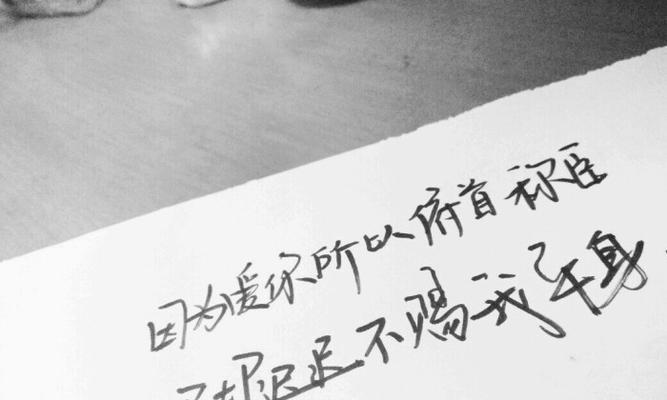 因为爱你所以俯首称臣
却迟迟不赐我平身